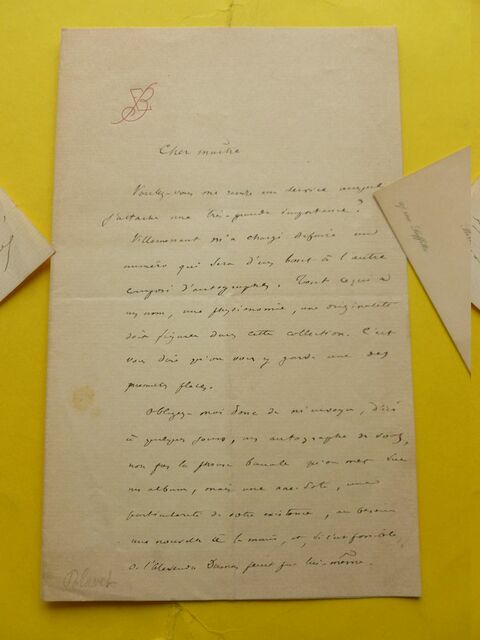 Cher maître
Voulez-vous me rendre un service auquel
j'attache une très-grande importance ?
Villemessant m'a chargé de faire un
numéro qui sera d'un bout à l'autre
composé d'autographes. Tout ce qui a
un nom, une physionomie, une originalité
doit figurer dans cette collection. C'est
vous dire qu'on vous y garde une des
premières places.
Obligez-moi donc de m'envoyer, d'ici
à quelques jours, un autographe de vous,
non pas la phrase banale qu'on met sur
un album, mais une anecdote, une
particularité de votre existence, au besoin
une nouvelle à la main, et, si c'est possible,
de l'Alexandre Dumas peint par lui-même.
Blavet